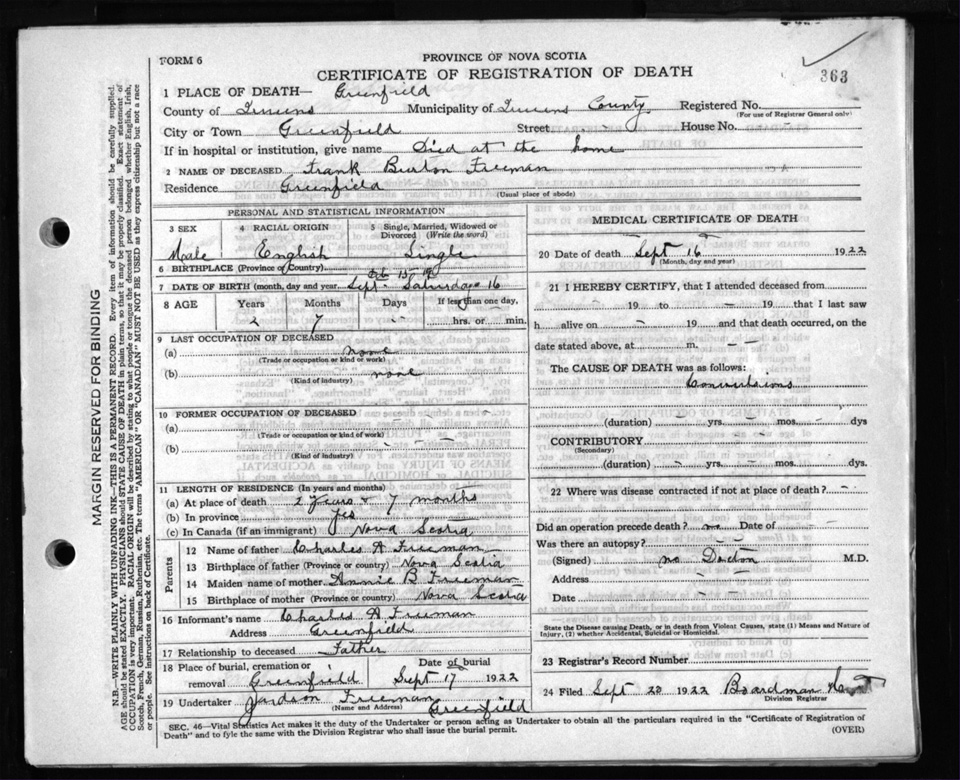 363
FORM 6
PROVINCE OF NOVA SCOTIA
CERTIFICATE OF REGISTRATION OF DEATH
1 PLACE OF DEATH— Greenfield
County of Queens Municipality of Queens County Registered No.
(For use of Registrar General only)
City or Town Greenfield Street - House No. -
If in hospital or institution, give name Died at the home
2 NAME OF DECEASED Frank Burton Freeman
Residence Greenfield
(Usual place of abode)
PERSONAL AND STATISTICAL INFORMATION
3 SEX 4 RACIAL ORIGIN 5 Single, Married, Widowed or Divorced (Write the word)
Male English Single
6 BIRTHPLACE (Province or Country)
7 DATE OF BIRTH (month, day and year) Sept. Saturday 16
8 AGE Years Months Days If less than one day,
2 7 - hrs. or min.
9 LAST OCCUPATION OF DECEASED
(a) none
(Trade or occupation or kind of work)
(b) none
(Kind of industry)
10 FORMER OCCUPATION OF DECEASED
(a) - - -
(Trade or occupation or kind of work)
(b) - - -
(Kind of industry)
11 LENGTH OF RESIDENCE (In years and months)
(a) At place of death 2 years & 7 months
(b) In province Yes
(c) In Canada (if an immigrant) Nova Scotia
Parents
12 Name of father Charles A Freeman
13 Birthplace of father (Province or country) Nova Scotia
14 Maiden name of mother Annie B Freeman
15 Birthplace of mother (Province or country) Nova Scotia
16 Informant's name Charles A Freeman
Address Greenfield
17 Relationship to deceased Father
18 Place of burial, cremation or removal Greenfield Date of burial Sept 17 1922
19 Undertaker Judson Freeman Greenfield
(Name and Address)
MEDICAL CERTIFICATE OF DEATH
20 Date of death Sept 16 1922
(Month, day and year)
21 I HEREBY CERTIFY, that I attended deceased from
- 19 - to - 19 -, that I last saw
h alive on - 19 and that death occurred, on the
date stated above, at m. - -
The CAUSE OF DEATH was as follows:
Convulsions
(duration) - yrs. - mos. - dys
CONTRIBUTORY - -
(Secondary)
(duration) - yrs. - mos. - dys.
22 Where was disease contracted if not at place of death? - -
Did an operation precede death? no Date of -
Was there an autopsy? - -
(Signed) no Doctor M.D.
Address - -
Date - -
State the Disease causing Death, or in death from Violent Causes, state (1) Means and Nature of Injury, (2) whether Accidental, Suicidal or Homicidal.
23 Registrar's Record Number
24 Filed Sept 20 1922 Boardman
Division Registrar
SEC. 46—Vital Statistics Act makes it the duty of the Undertaker or person acting as Undertaker to obtain all the particulars required in the "Certificate of Registration of
Death" and to fyle the same with the Division Registrar who shall issue the burial permit.
(OVER)
MARGIN RESERVED FOR BINDING
N.B.—WRITE PLAINLY WITH UNFADING INK—THIS IS A PERMANENT RECORD. Every item of information should be carefully supplied.
AGE should be stated EXACTLY. PHYSICIANS should STATE CAUSE OF DEATH in plain terms, so that it may be properly classified. Exact statement of
OCCUPATION is very important. RACIAL ORIGIN will be described by stating to what people or tongue the deceased person belonged whether English, Irish,
Scotch, French, German, Russian, Ruthenian, etc. The terms "AMERICAN" OR "CANADIAN" MUST NOT BE USED as they express citizenship but not a race
or people. See instructions on back of Certificate.